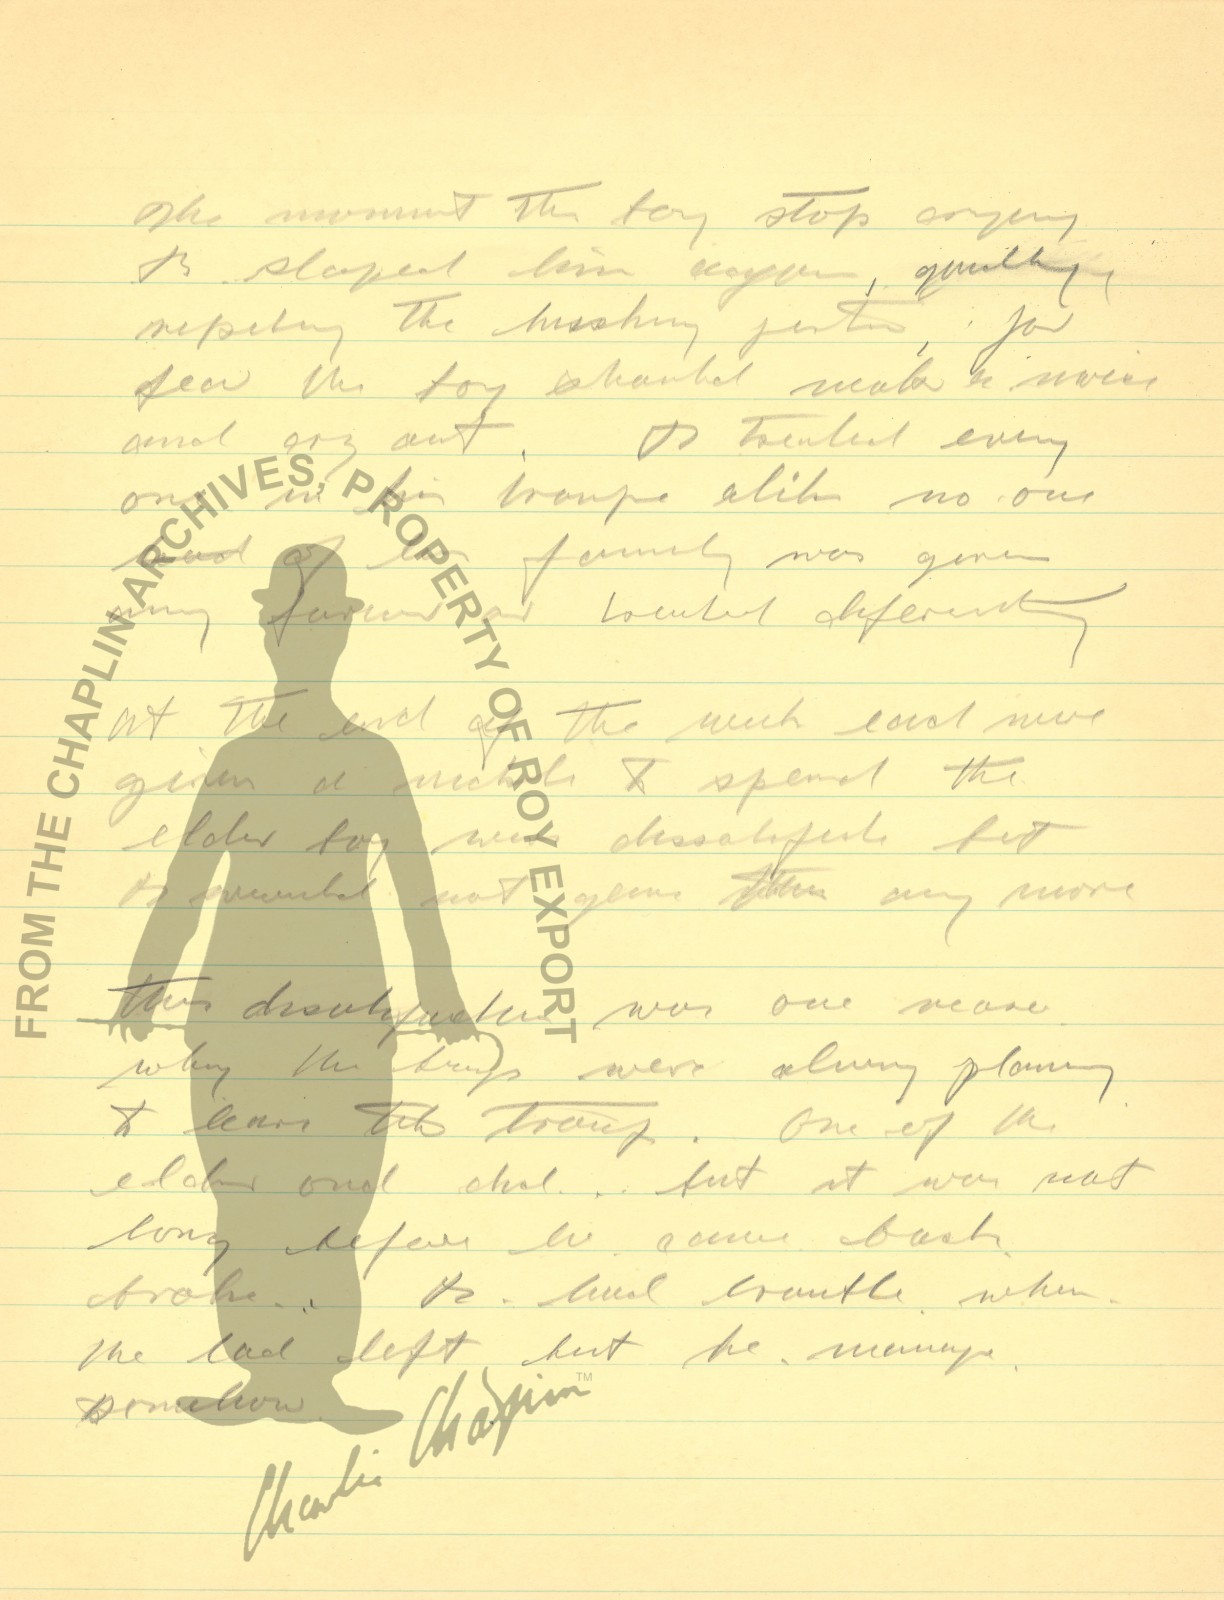 The moment the boy stop crying
B. slaped him
repeting the hushing jester, for
fear the boy should make a noise
and cry out. B treated every
one in his troupe alike no one
of his family was given
any favour or treated diferently
At the end of the week each were
given a nickle to spend the
elder boy was dissatisfide but
B would not give them any more
This dissatisfaction was one reason
why the boys were alway planing
to leave the troup. One of the
elder ond did... but it was not
long before he came back
broke... B. had trouble when
the lad left, but he manage
somehow.
FROM THE CHAPLIN ARCHIVES, PROPERTY OF ROY EXPORT
Charlie Chaplin™